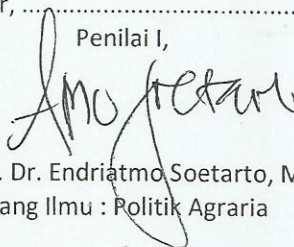 r, ......................................
Penilai I,
. Dr. Endriatmo Soetarto, M
ang Ilmu : Politik Agraria